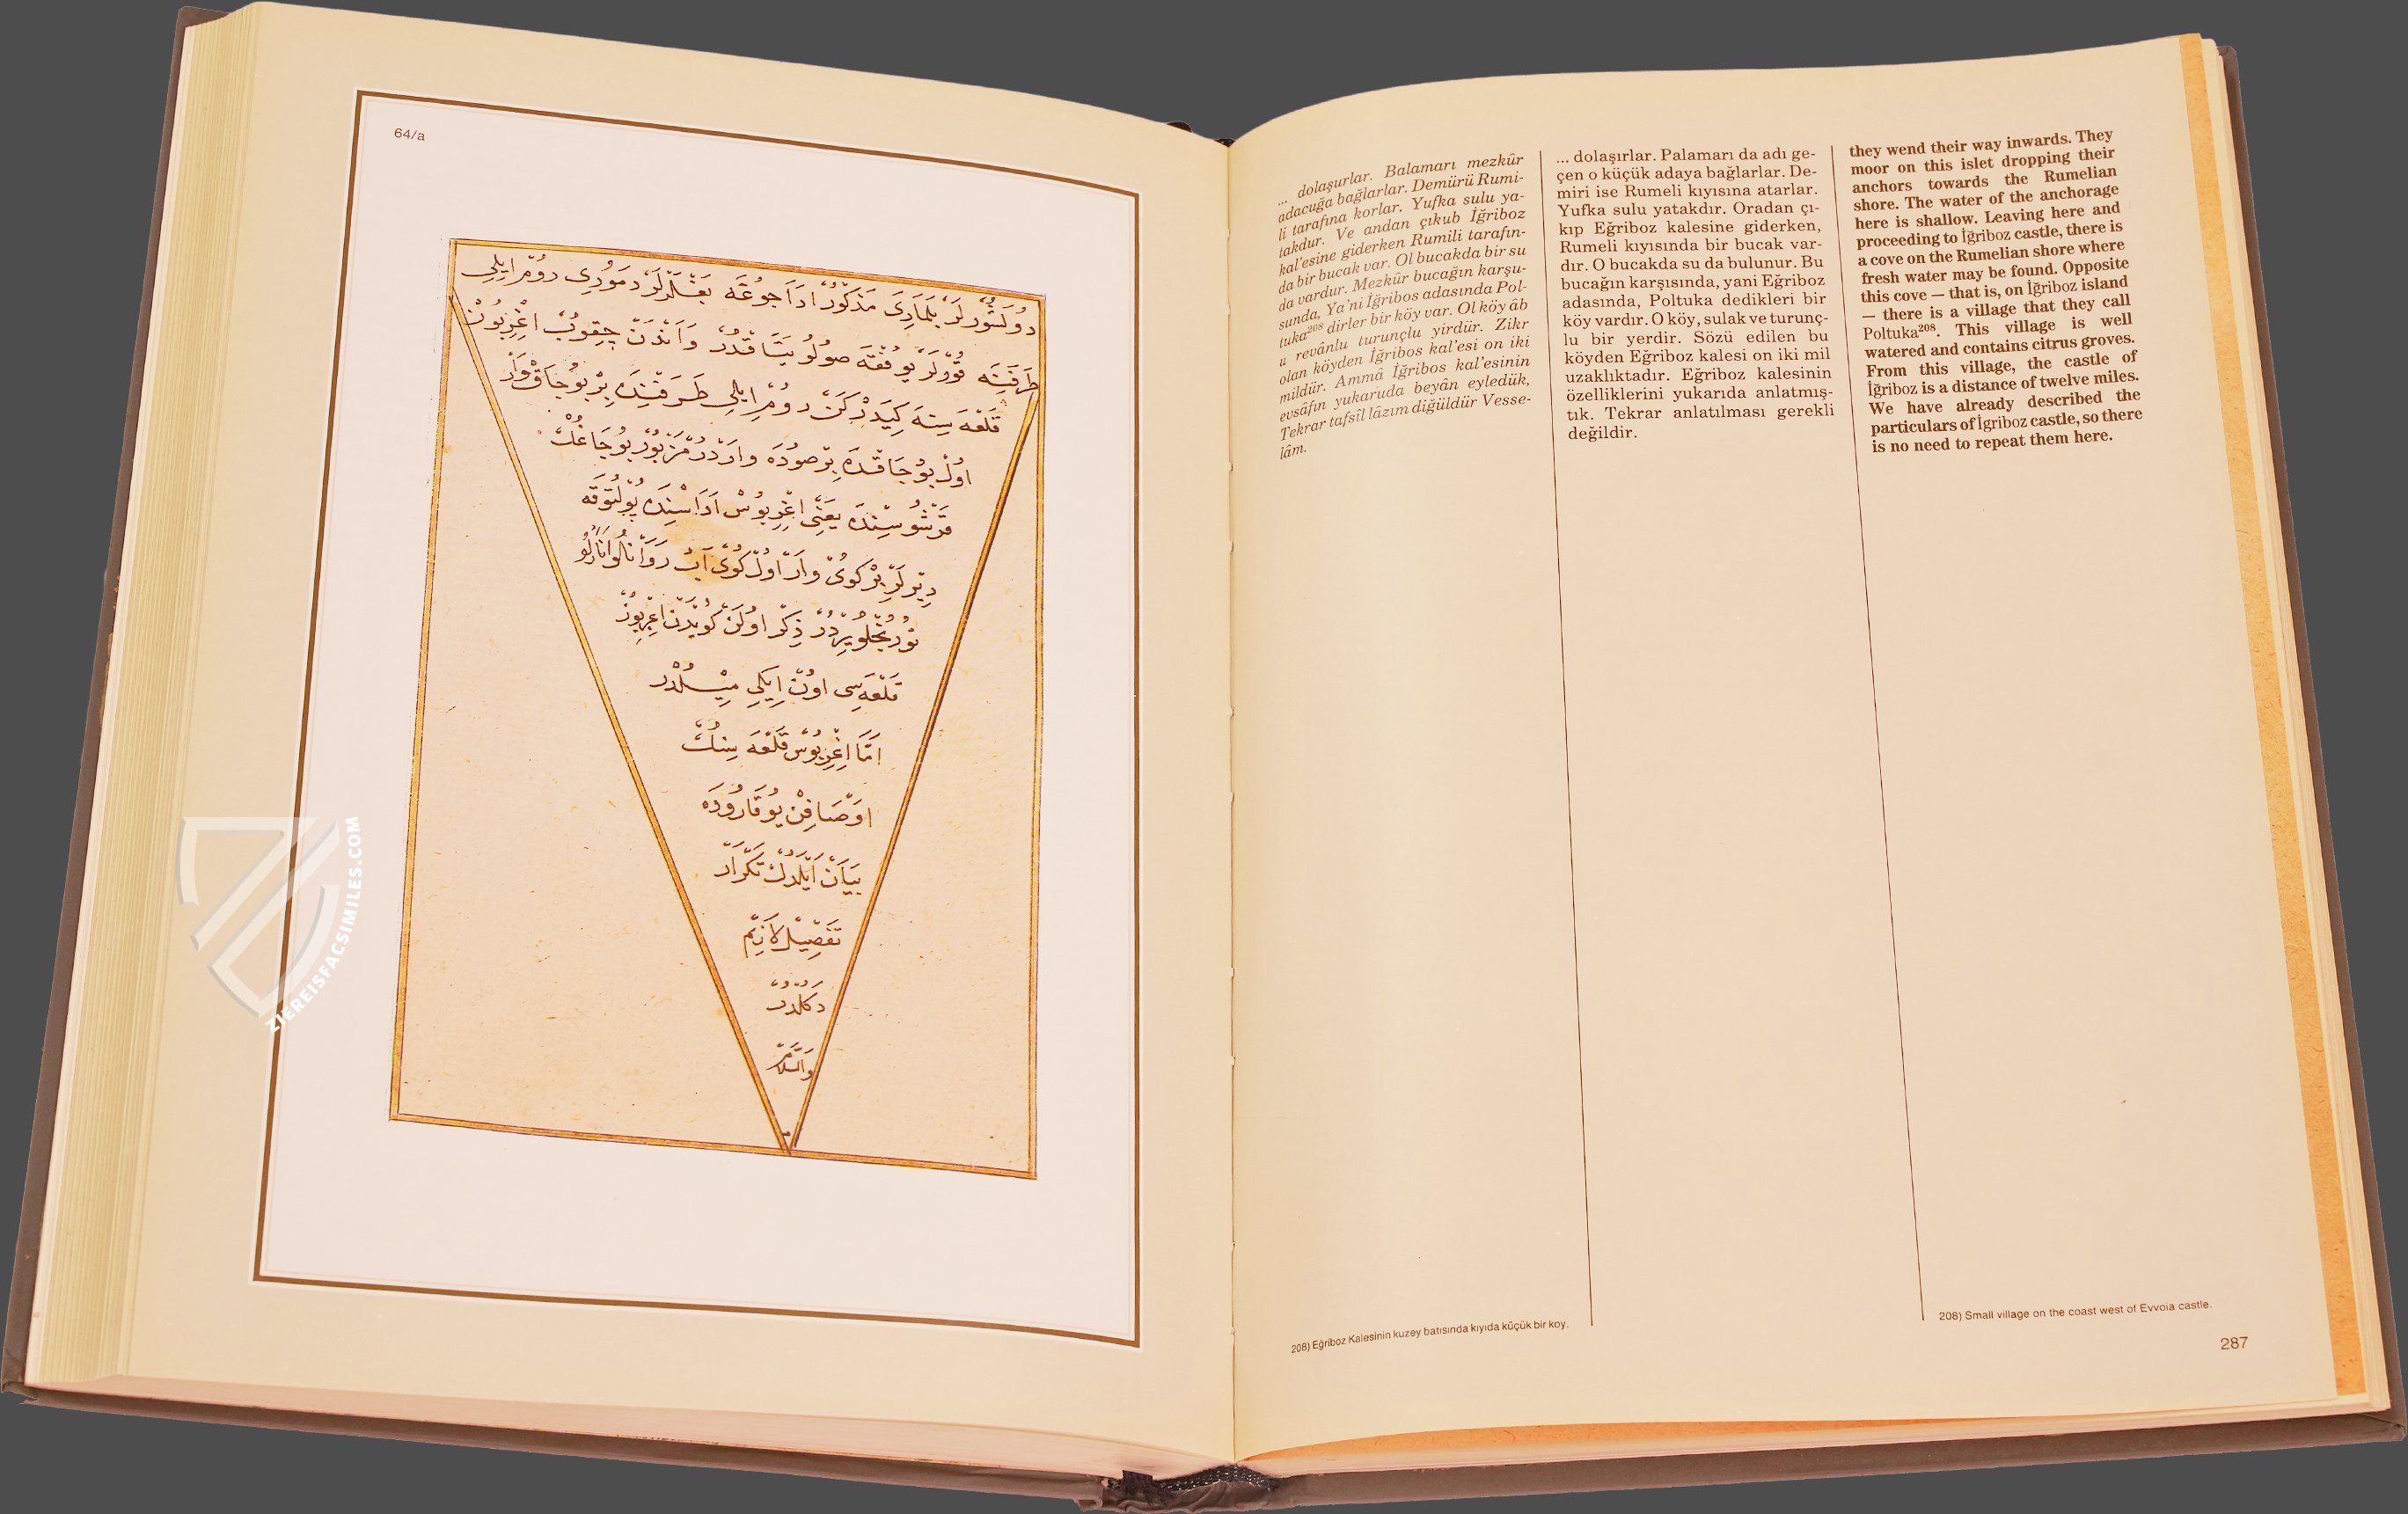 64/a
دُولَشُورلَرْ بَلَمَارِیَ مَذْكُورْ اَدَاجُوغَه بَغْلَرْلَرْ دَمُورِی رُومْ اِیلِی
طَرَفِنَه قُورْلَرْ یُوفْقَه صُولُو یَتَاقْدُرْ وَاَنْدَنْ چِقُوبْ اِغْرِبُوزْ
قَلْعَه سِنَه كِیدَرْكَنْ رُومْ اِیلِی طَرَفِنْدَه بِرْ بُوجَاقْ وَارْ
اُولْ بُوجَاقْدَه بِرْ صُودَه وَارْدُرْ مَزْبُورْ بُوجَاغُكْ
قَرْشُوسِنْدَه یَعْنِی اِغْرِبُوسْ اَدَاسِنْدَه پُولْتُوقَه
دِیرْلَرْ بِرْ كُویْ وَارْ اُولْ كُویْ آبْ رَوَانْلُو
تُورُنْجْلُو یِرْدُرْ ذِكْرْ اُولَنْ كُویْدَنْ اِغْرِبُوزْ
قَلْعَه سِی اُونْ اِیكِی مِیلْدُرْ
اَمَّا اِغْرِبُوسْ قَلْعَه سِنُكْ
اَوْصَافِنْ یُوقَارُودَه
بَیَانْ اَیْلَدُكْ تَكْرَارْ
تَفْصِیلْ لَازِمْ
دَكُلْدُرْ
وَالسَّلَامْ
... dolaşurlar. Balamarı mezkûr
adacuğa bağlarlar. Demürü Rumi-
li tarafına korlar. Yufka sulu ya-
takdur. Ve andan çıkub İğriboz
kal'esine giderken Rumili tarafın-
da bir bucak var. Ol bucakda bir su
da vardur. Mezkûr bucağın karşu-
sunda, Ya'ni İğribos adasında Pol-
tuka²⁰⁸ dirler bir köy var. Ol köy âb
u revânlu turunçlu yirdür. Zikr
olan köyden İğribos kal'esi on iki
mildür. Ammâ İğribos kal'esinin
evsâfın yukaruda beyân eyledük,
Tekrar tafsîl lâzım diğüldür Vesse-
lâm.
... dolaşırlar. Palamarı da adı ge-
çen o küçük adaya bağlarlar. De-
miri ise Rumeli kıyısına atarlar.
Yufka sulu yatakdır. Oradan çı-
kıp Eğriboz kalesine giderken,
Rumeli kıyısında bir bucak var-
dır. O bucakda su da bulunur. Bu
bucağın karşısında, yani Eğriboz
adasında, Poltuka dedikleri bir
köy vardır. O köy, sulak ve turunç-
lu bir yerdir. Sözü edilen bu
köyden Eğriboz kalesi on iki mil
uzaklıktadır. Eğriboz kalesinin
özelliklerini yukarıda anlatmış-
tık. Tekrar anlatılması gerekli
değildir.
they wend their way inwards. They
moor on this islet dropping their
anchors towards the Rumelian
shore. The water of the anchorage
here is shallow. Leaving here and
proceeding to İğriboz castle, there is
a cove on the Rumelian shore where
fresh water may be found. Opposite
this cove — that is, on İğriboz island
— there is a village that they call
Poltuka²⁰⁸. This village is well
watered and contains citrus groves.
From this village, the castle of
İğriboz is a distance of twelve miles.
We have already described the
particulars of İgriboz castle, so there
is no need to repeat them here.
208) Eğriboz Kalesinin kuzey batısında kıyıda küçük bir koy.
208) Small village on the coast west of Evvoia castle.
287
ZIEREISFACSIMILES.COM